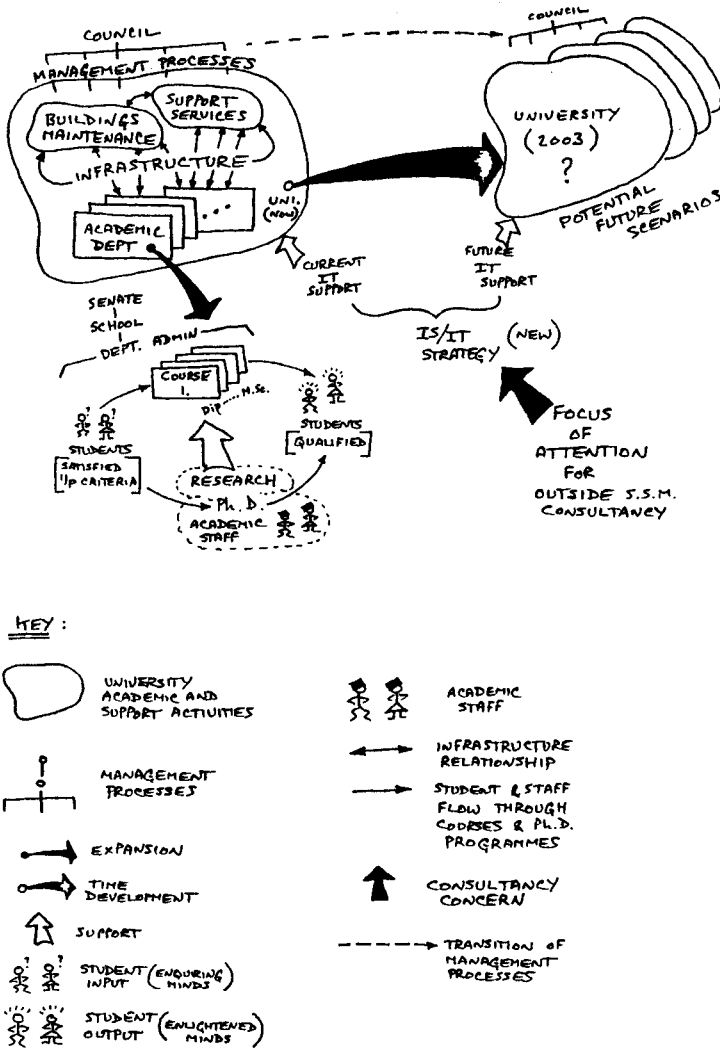 COUNCIL
MANAGEMENT PROCESSES
BUILDINGS
MAINTENANCE
SUPPORT
SERVICES
INFRASTRUCTURE
ACADEMIC
DEPT
...
UNI.
(NOW)
COUNCIL
UNIVERSITY
(2003)
?
POTENTIAL
FUTURE
SCENARIOS
CURRENT
IT
SUPPORT
FUTURE
IT
SUPPORT
IS/IT
STRATEGY (NEW)
FOCUS
OF
ATTENTION
FOR
OUTSIDE S.S.M.
CONSULTANCY
SENATE
SCHOOL
DEPT. ADMIN
COURSE
1.
Dip ...... M.Sc.
? ?
STUDENTS
[SATISFIED
I/P CRITERIA]
STUDENTS
[QUALIFIED]
RESEARCH
Ph. D.
ACADEMIC
STAFF
KEY :
UNIVERSITY
ACADEMIC AND
SUPPORT ACTIVITIES
MANAGEMENT
PROCESSES
EXPANSION
TIME
DEVELOPMENT
SUPPORT
? ?
STUDENT (ENQUIRING
INPUT MINDS)
STUDENT (ENLIGHTENED
OUTPUT MINDS)
ACADEMIC
STAFF
INFRASTRUCTURE
RELATIONSHIP
STUDENT & STAFF
FLOW THROUGH
COURSES & Ph.D.
PROGRAMMES
CONSULTANCY
CONCERN
TRANSITION OF
MANAGEMENT
PROCESSES